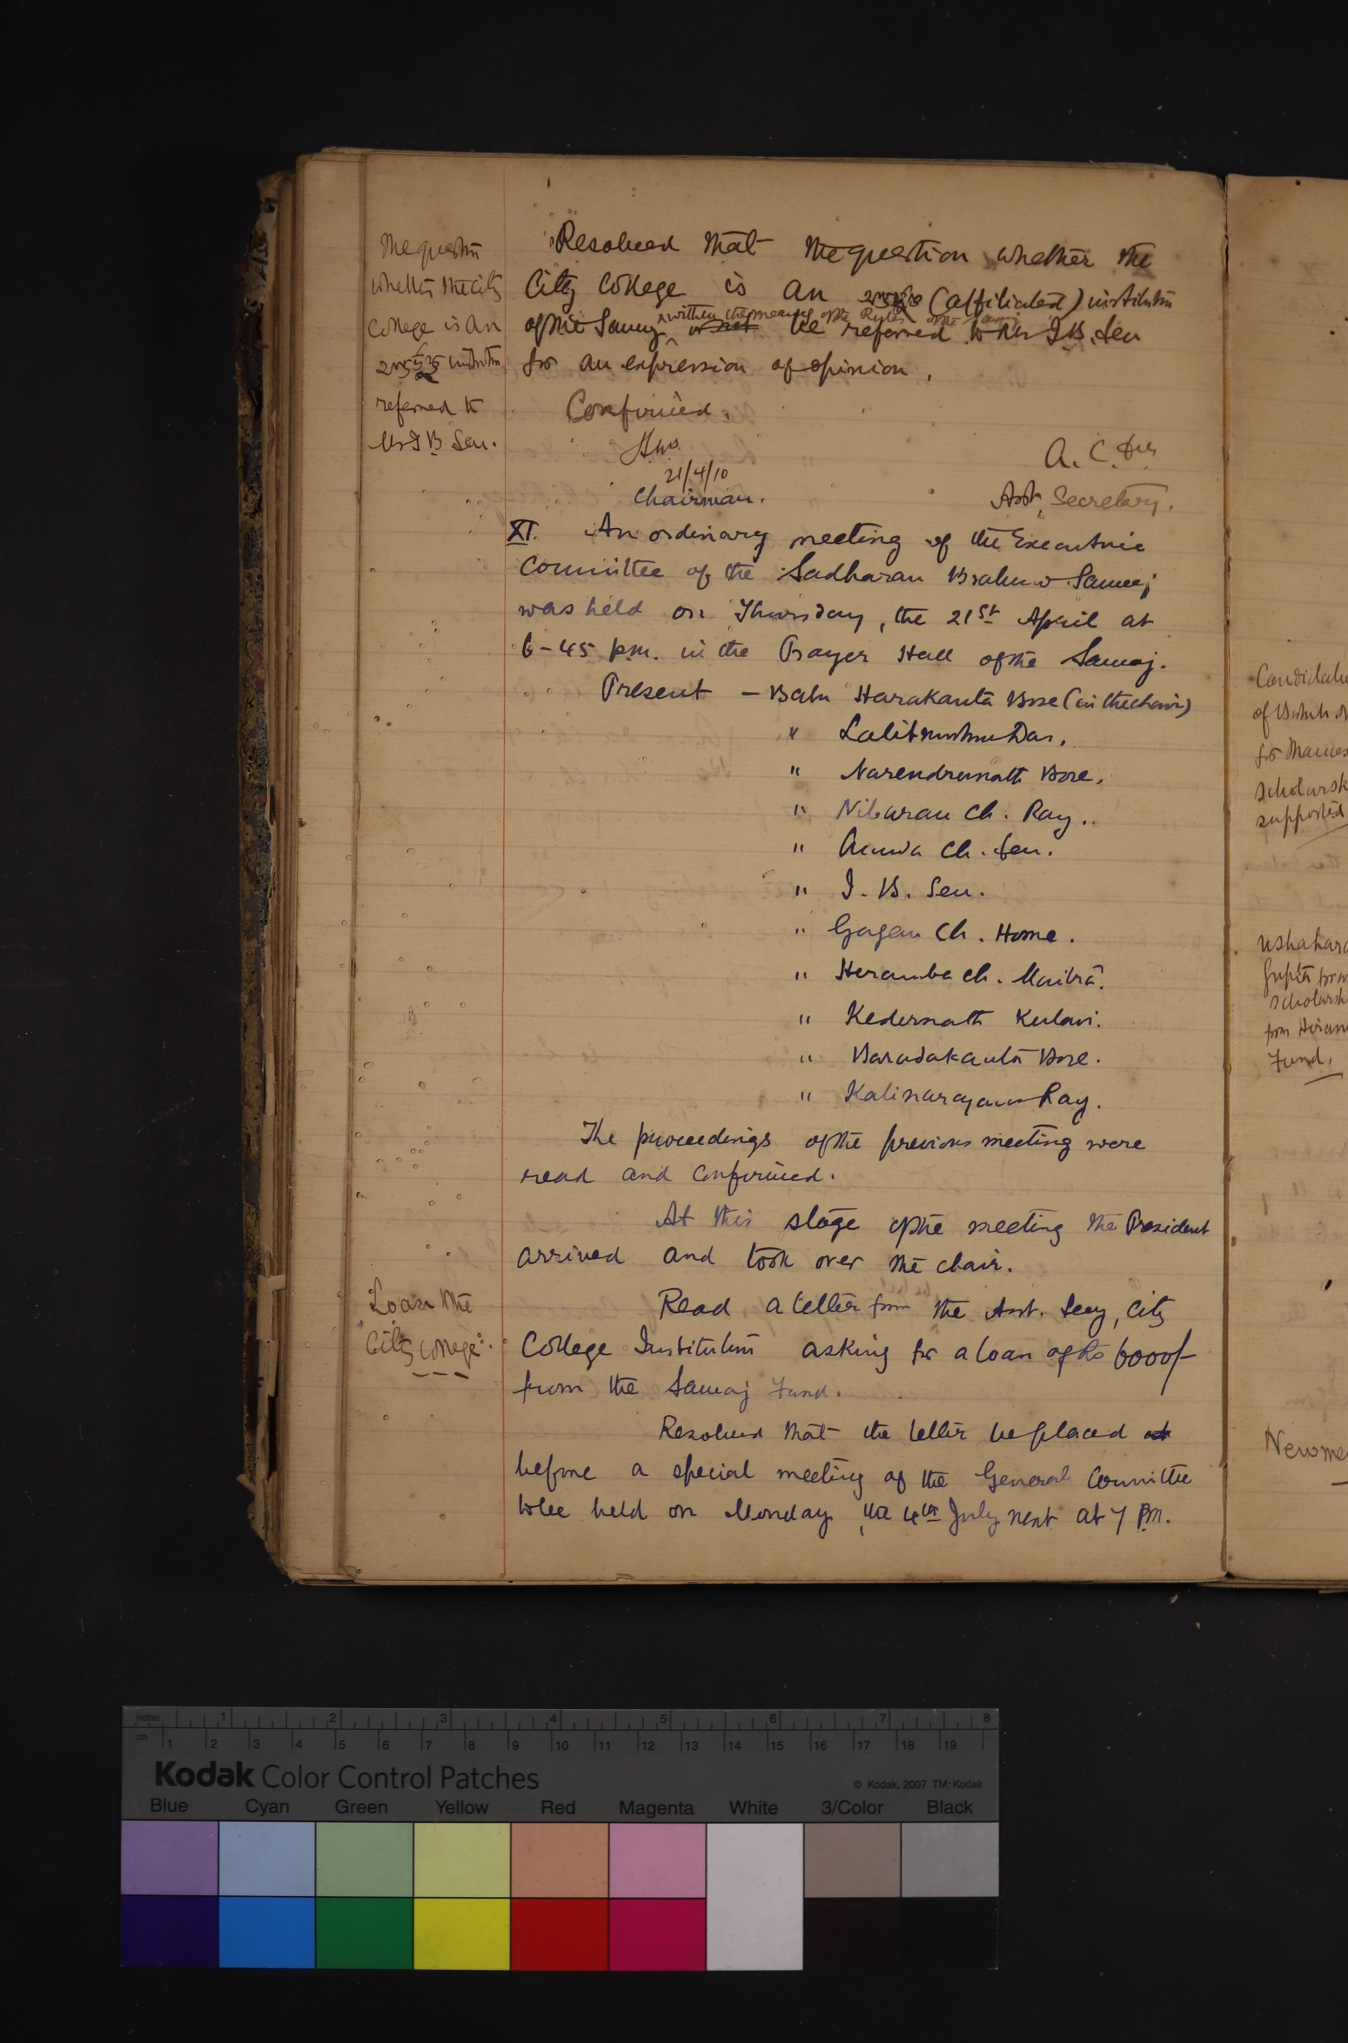 The question
whether the City
College is an
institution
referred to
Mr I B Sen.
Resolved that the question whether the
City College is an (affiliated) institution
of the Samaj within the meaning of the Rules of the Samaj
or not be referred to Mr I. B. Sen
for an expression of opinion.
Confirmed.
21/4/10
Chairman.
A. C. Sen
Asst. Secretary.
XI. An ordinary meeting of the Executive
Committee of the Sadharan Brahmo Samaj
was held on Thursday, the 21st April at
6-45 p.m. in the Prayer Hall of the Samaj.
Present – Babu Harakanta Bose (in the chair)
" Lalitmohan Das.
" Narendranath Bose.
" Nibaran Ch. Ray.
" Ch. Sen.
" I. B. Sen.
" Gagan Ch. Home.
" Heramba Ch. Maitra.
" Kedarnath Kulavi.
" Baradakanta Bose.
" Kalinarayan Ray.
The proceedings of the previous meeting were
read and confirmed.
At this stage of the meeting the President
arrived and took over the chair.
Loan the
City College.
Read a letter from the Asst. Secy, City
College Institution asking for a loan of Rs 6000/-
from the Samaj Fund.
Resolved that the letter be placed at
before a special meeting of the General Committee
to be held on Monday, the 4th July next at 7 P.M.
Candidatu
of
for
Scholarsh
supported
Ushakara
Gupta
Scholarsh
from
Fund.
New me
inches 1 2 3 4 5 6 7 8
cm 1 2 3 4 5 6 7 8 9 10 11 12 13 14 15 16 17 18 19
Kodak Color Control Patches
© Kodak, 2007 TM: Kodak
Blue Cyan Green Yellow Red Magenta White 3/Color Black